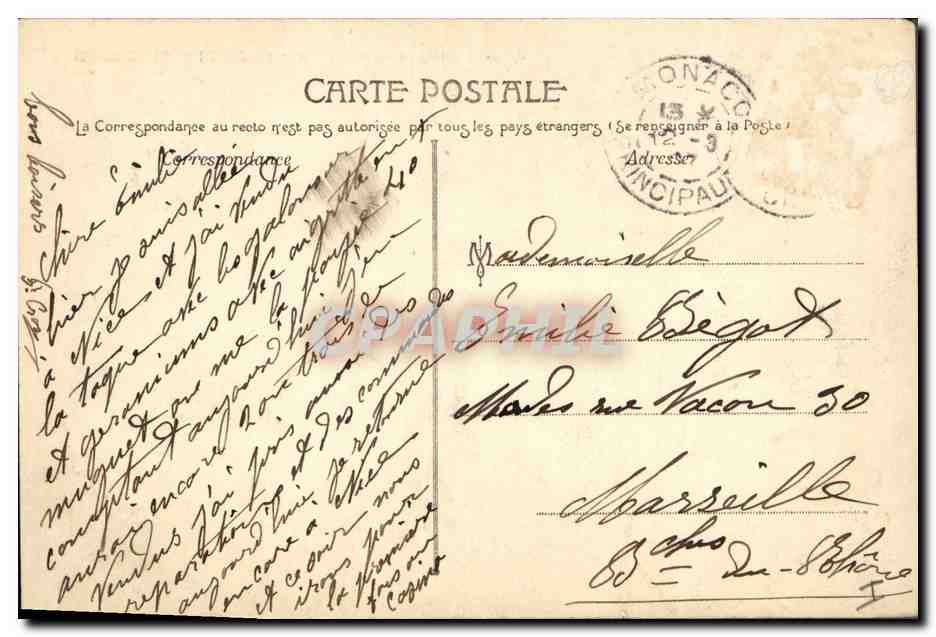 CARTE POSTALE
La Correspondance au recto n'est pas autorisée par tous les pays étrangers (Se renseigner à la Poste)
Correspondance
Adresse
MONACO
13 *
12 -3
PRINCIPAUTÉ
Chère Emilie
hier je suis allée
à Nice et j'ai vendu
la toque avec
et geraniums avec aigrette en
muguet on me la payée 40
comptant aujourd'hui j'en
aurai encore 2 ou trois de
vendus j'ai pris aussi des
reparations et des commandes
aujourd'hui je retourne
encore à Nice
et ce soir nous
irons pour
la première
fois au
Casino
bons baisers
Mademoiselle
Emilie Bégot
Modes rue Vacon 30
Marseille
Bches du-Rhône
CPAPHIL